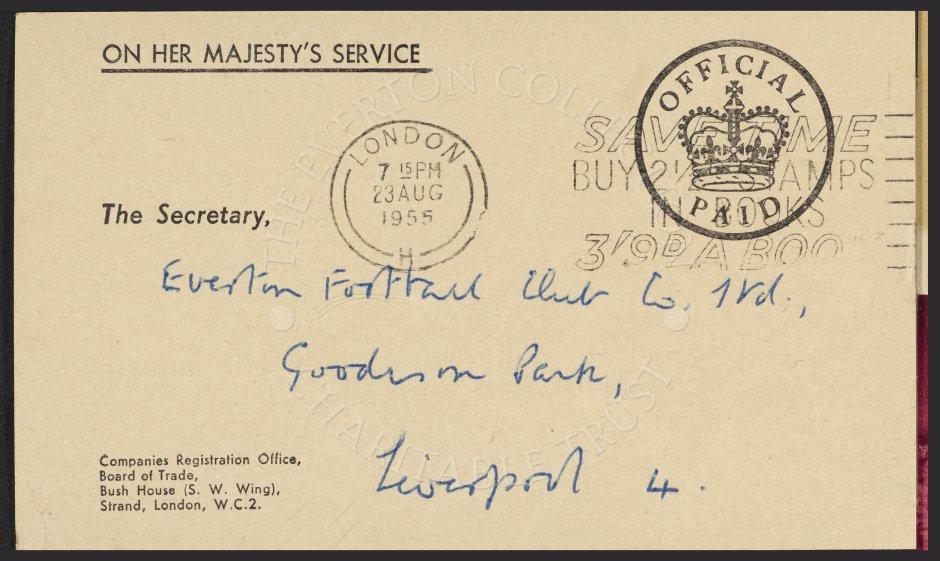 ON HER MAJESTY'S SERVICE
OFFICIAL
PAID
LONDON
7 15 PM
23 AUG
1955
H
SAVE TIME
BUY 2½ STAMPS
IN BOOKS
3/9D A BOO
The Secretary,
Everton Football Club Co. Ltd.,
Goodison Park,
Liverpool 4.
Companies Registration Office,
Board of Trade,
Bush House (S. W. Wing),
Strand, London, W.C.2.
THE EVERTON COLL
CHARITABLE TRUST